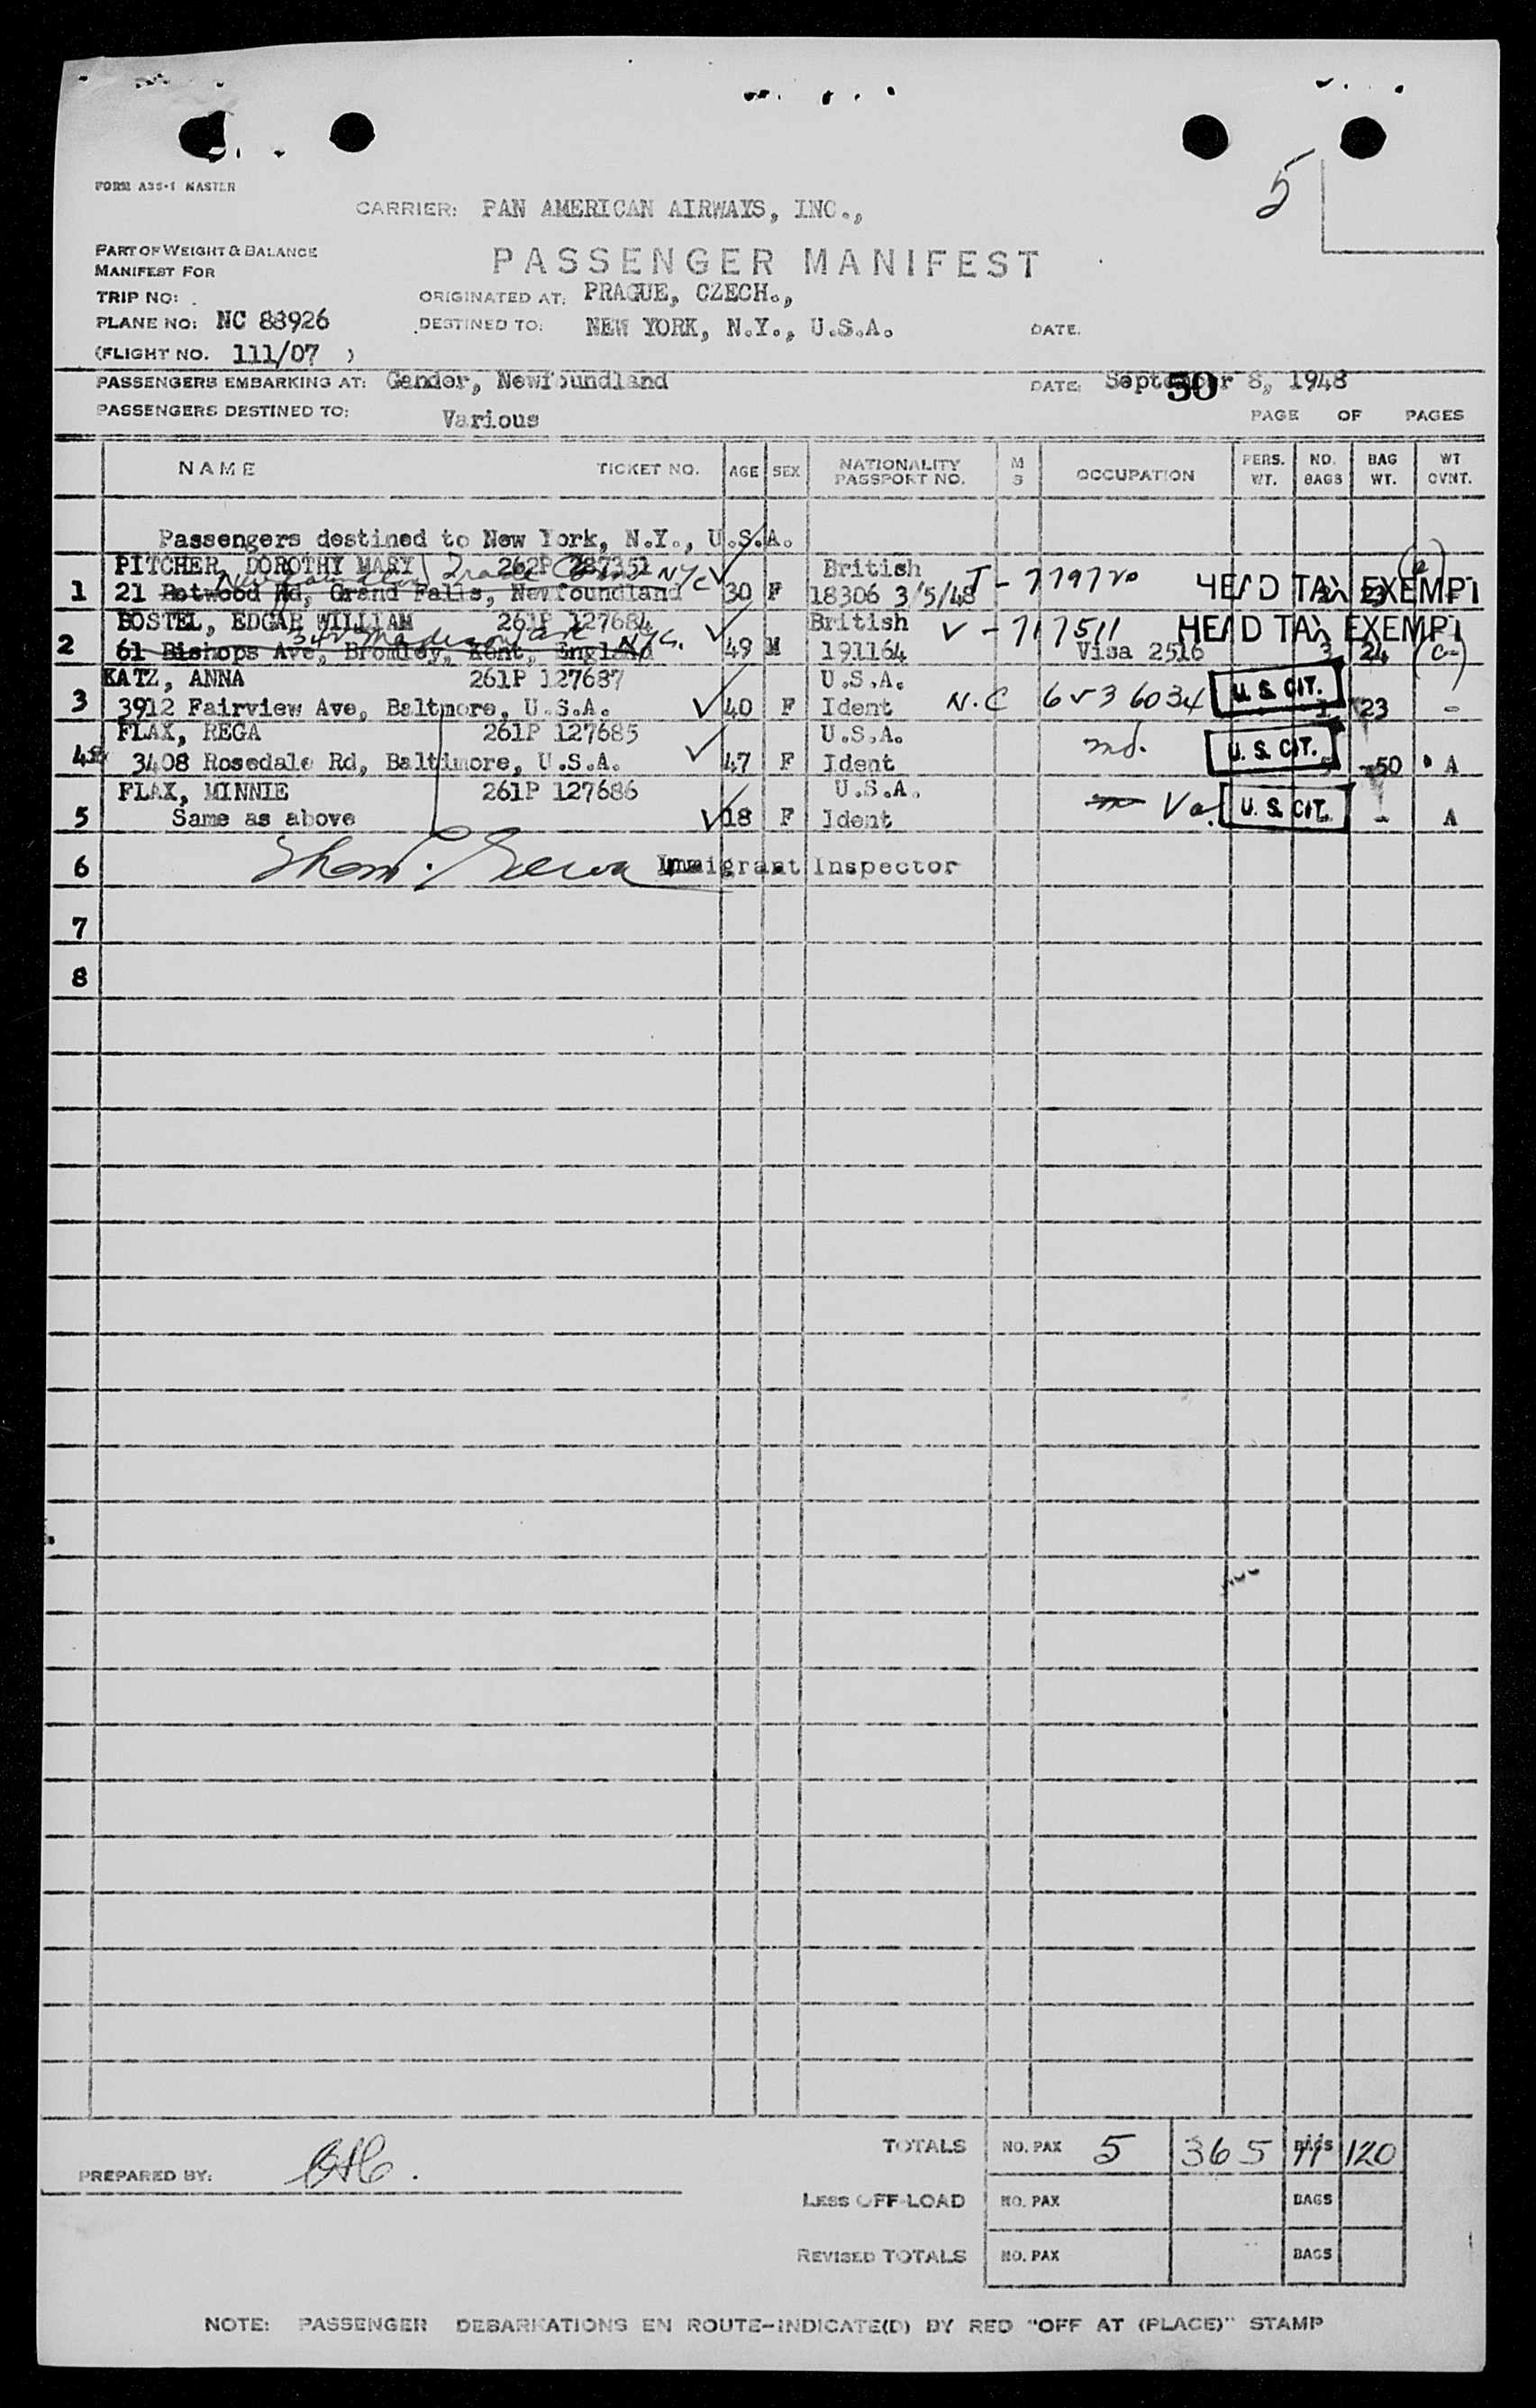 5
FORM A35-1 MASTER
CARRIER: PAN AMERICAN AIRWAYS, INC.,
PART OF WEIGHT & BALANCE
MANIFEST FOR
PASSENGER MANIFEST
TRIP NO:
ORIGINATED AT: PRAGUE, CZECH.,
PLANE NO: NC 88926
DESTINED TO: NEW YORK, N.Y., U.S.A.
DATE.
(FLIGHT NO. 111/07 )
PASSENGERS EMBARKING AT: Gander, Newfoundland
DATE: September 8, 1948
50
PASSENGERS DESTINED TO: Various
PAGE OF PAGES
NAME TICKET NO. AGE SEX NATIONALITY PASSPORT NO. M S OCCUPATION PERS. WT. NO. BAGS BAG WT. WT CVNT.
Passengers destined to New York, N.Y., U.S.A.
PITCHER, DOROTHY MARY 262P 287351 British T - 779720 (a)
Newfoundland Trade Comm NYC
1 21 Botwood Rd, Grand Falls, Newfoundland 30 F 18306 3/5/48 HEAD TAX EXEMPT 2 23 -
BOSTEL, EDGAR WILLIAM 261P 127684 British V - 717511 HEAD TAX EXEMPT
342 Madison Ave NYC.
2 61 Bishops Ave, Bromley, Kent, England 49 M 191164 Visa 2516 3 24 (c-)
KATZ, ANNA 261P 127687 U.S.A.
3 3912 Fairview Ave, Baltmore, U.S.A. 40 F Ident N.C 6236034 U.S. CIT. 1 23 -
FLAX, REGA 261P 127685 U.S.A.
4 3408 Rosedale Rd, Baltimore, U.S.A. 47 F Ident md. U.S. CIT. 5 50 A
FLAX, MINNIE 261P 127686 U.S.A.
5 Same as above 18 F Ident Va. U.S. CIT. - A
6 Immigrant Inspector
7
8
TOTALS NO. PAX 5 365 BAGS 11 120
PREPARED BY:
LESS OFF-LOAD NO. PAX BAGS
REVISED TOTALS NO. PAX BAGS
NOTE: PASSENGER DEBARKATIONS EN ROUTE-INDICATE(D) BY RED "OFF AT (PLACE)" STAMP